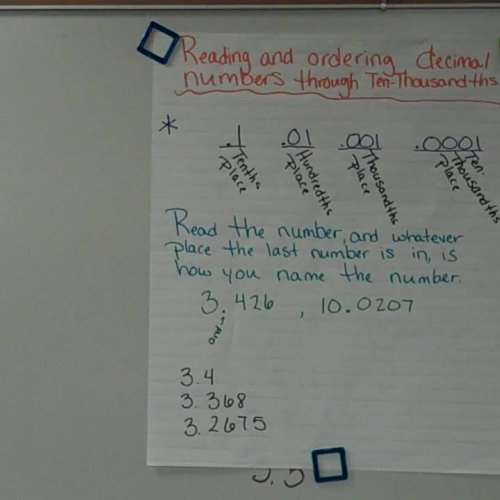 Reading and ordering decimal
numbers through Ten-Thousandths
* .1 .01 .001 .0001
Tenths Place
Hundredths Place
Thousandths Place
Ten-Thousandths Place
Read the number, and whatever
place the last number is in, is
how you name the number.
3.426 , 10.0207
and
3.4
3.368
3.2675